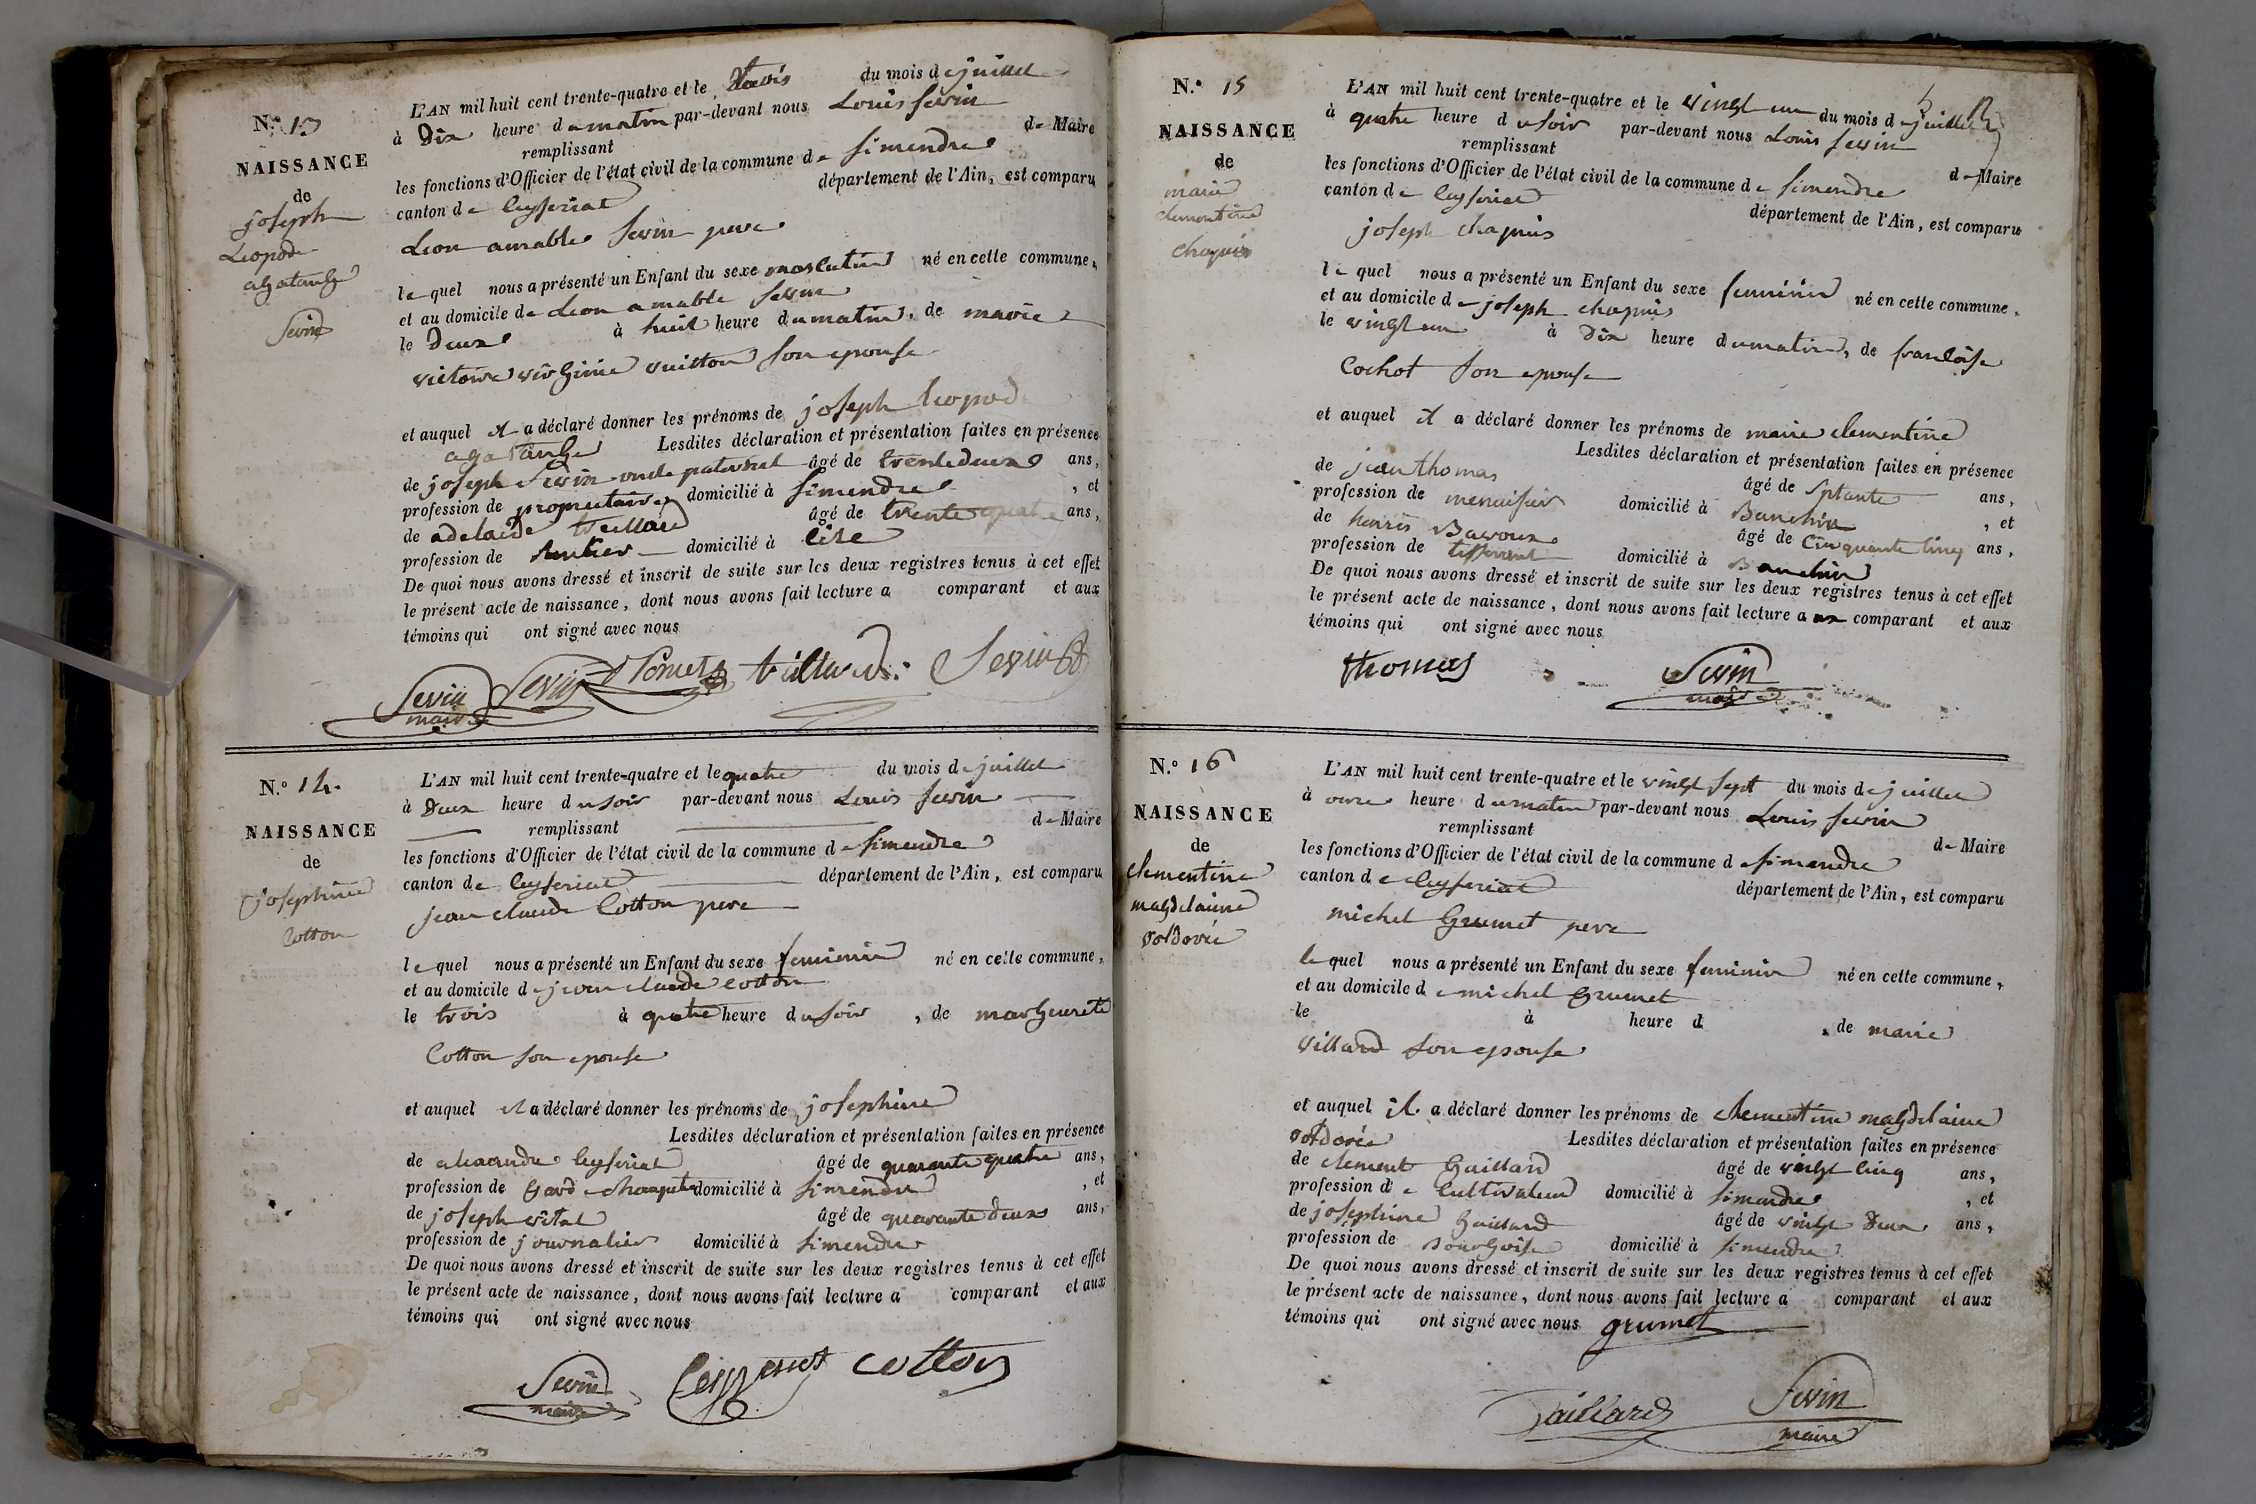 N.° 13
NAISSANCE
de
joseph
Leopode
agatange
Sevin
L'AN mil huit cent trente-quatre et le trois du mois de juillet
à Dix heure du matin par-devant nous Louis sevin
remplissant de Maire
les fonctions d'Officier de l'état civil de la commune de simendre
canton de Ceyseriat département de l'Ain, est comparu
Leon amable sevin pere
le quel nous a présenté un Enfant du sexe masculin né en cette commune,
et au domicile de Leon amable sevin
le Deux à huit heure du matin, de marie
victoire virginie vuitton son epouse
et auquel il a déclaré donner les prénoms de joseph leopod
agatange Lesdites déclaration et présentation faites en présence
de joseph sevin oncle paternel âgé de trente deux ans,
profession de proprietaire domicilié à simendre , et
de adelaide treillard âgé de trente quatre ans,
profession de domicilié à
De quoi nous avons dressé et inscrit de suite sur les deux registres tenus à cet effet
le présent acte de naissance, dont nous avons fait lecture a comparant et aux
témoins qui ont signé avec nous
Sevin Sevin Sevin
maire
N.° 14.
NAISSANCE
de
josephine
Cotton
L'AN mil huit cent trente-quatre et le quatre du mois de juillet
à Deux heure du soir par-devant nous Louis sevin
remplissant de Maire
les fonctions d'Officier de l'état civil de la commune de simendre
canton de Ceyseriat département de l'Ain, est comparu
jean claude Cotton pere
le quel nous a présenté un Enfant du sexe feminin né en cette commune,
et au domicile de jean claude cotton
le trois à quatre heure du soir , de margueritte
Cotton son epouse
et auquel il a déclaré donner les prénoms de josephine
Lesdites déclaration et présentation faites en présence
de alexandre Ceyseriat âgé de quarante quatre ans,
profession de Gard champetre domicilié à simendre , et
de joseph vital âgé de quarante deux ans,
profession de journalier domicilié à simendre
De quoi nous avons dressé et inscrit de suite sur les deux registres tenus à cet effet
le présent acte de naissance, dont nous avons fait lecture a comparant et aux
témoins qui ont signé avec nous
Sevin cotton
maire
N.° 15
NAISSANCE
de
marie
clementine
chapuis
L'AN mil huit cent trente-quatre et le vingt un du mois de juillet
à quatre heure du soir par-devant nous Louis sevin
remplissant de Maire
les fonctions d'Officier de l'état civil de la commune de simendre
canton de Ceyseriat département de l'Ain, est comparu
joseph chapuis
le quel nous a présenté un Enfant du sexe feminin né en cette commune,
et au domicile de joseph chapuis
le vingt un à Dix heure du matin, de francoise
Cochot son epouse
et auquel il a déclaré donner les prénoms de marie clementine
Lesdites déclaration et présentation faites en présence
de jean thomas âgé de septante ans,
profession de menuisier domicilié à Banchin , et
de henris Bavoux âgé de cinquante cinq ans,
profession de tisserant domicilié à Banchin
De quoi nous avons dressé et inscrit de suite sur les deux registres tenus à cet effet
le présent acte de naissance, dont nous avons fait lecture a au comparant et aux
témoins qui ont signé avec nous
thomas Sevin
maire
N.° 16
NAISSANCE
de
clementine
magdelaine
L'AN mil huit cent trente-quatre et le vingt sept du mois de juillet
à onze heure du matin par-devant nous Louis sevin
remplissant de Maire
les fonctions d'Officier de l'état civil de la commune de simendre
canton de Ceyseriat département de l'Ain, est comparu
michel Grumet pere
le quel nous a présenté un Enfant du sexe feminin né en cette commune,
et au domicile de michel Grumet
le à heure d , de marie
villard son epouse
et auquel il a déclaré donner les prénoms de clementine magdelaine
Lesdites déclaration et présentation faites en présence
de clement Gaillard âgé de vingt cinq ans,
profession de Cultivateur domicilié à simendre , et
de josephine Gaillard âgé de vingt Deux ans,
profession de Bourgoise domicilié à simendre
De quoi nous avons dressé et inscrit de suite sur les deux registres tenus à cet effet
le présent acte de naissance, dont nous avons fait lecture a comparant et aux
témoins qui ont signé avec nous grumet
Gaillard Sevin
maire